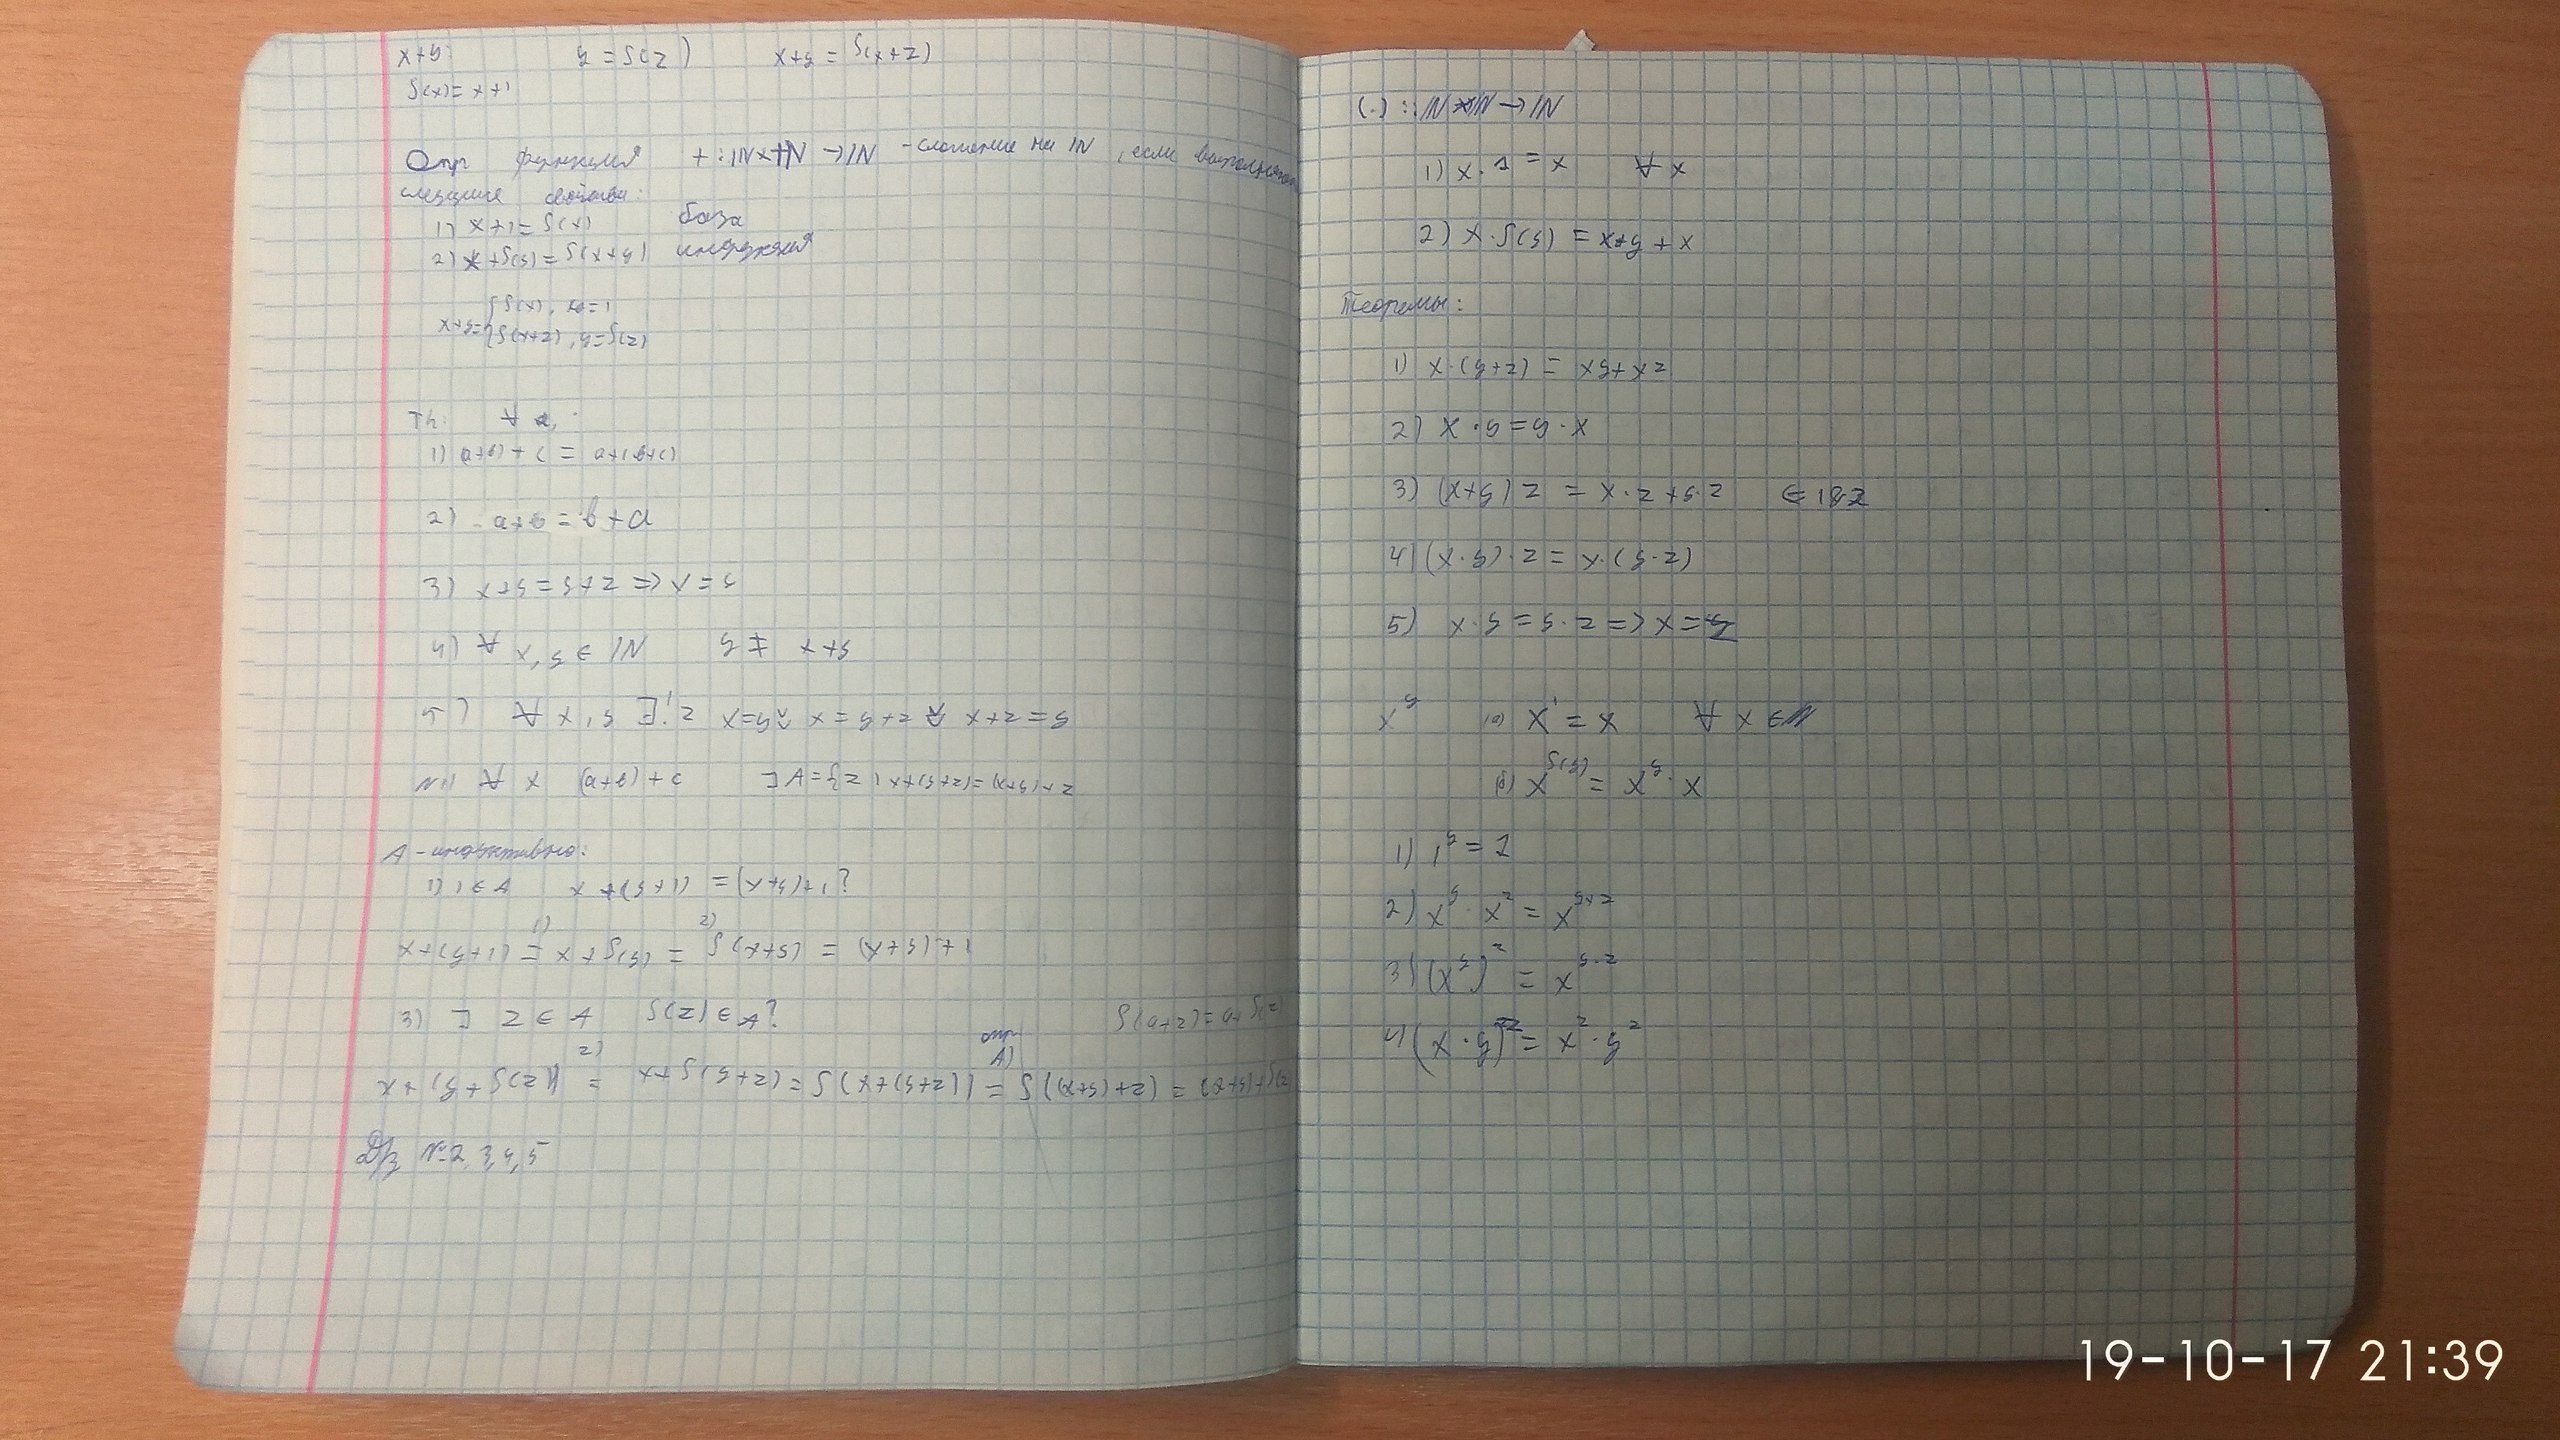 x+y: y = S(z) x+y = S(x+z)
S(x) = x+1
Опр функция + : ℕ×ℕ → ℕ - сложение на ℕ, если
свойства:
1) x+1 = S(x) база
2) x+S(y) = S(x+y) индукция
x+y = { S(x), = 1
S(x+z), y = S(z)
Th: ∀
1) (a+b) + c = a+(b+c)
2) a+b = b+a
3) x+y = y+z =>
4) ∀ x, y ∈ ℕ y ≠ x+y
5) ∀ x, y ∃! z x=y x = y+z x+z = y
N1) ∀ x (a+b)+c ] A = { z | x+(y+z) = (x+y)+z
A - индуктивно:
1) 1 ∈ A x+(y+1) = (x+y)+1?
x+(y+1) =¹⁾ x+S(y) =²⁾ S(x+y) = (x+y)+1
3) ] z ∈ A S(z) ∈ A? S(a+z) = a+S(z)
опр
A)
x+(y+S(z)) =²⁾ x+S(y+z) = S(x+(y+z)) = S((x+y)+z) = (x+y)+S(z
Д/з № 2, 3, 4, 5
(·) : ℕ×ℕ → ℕ
1) x·1 = x ∀ x
2) x·S(y) = x·y + x
Теоремы:
1) x·(y+z) = xy + xz
2) x·y = y·x
3) (x+y)z = x·z + y·z ⇐ 1&2
4) (x·y)·z = x·(y·z)
5) x·y = y·z => x = z
xʸ (a) x¹ = x ∀ x ∈ ℕ
(б) x^S(y) = xʸ·x
1) 1ʸ = 1
2) xʸ·xᶻ = x^(y+z)
3) (xʸ)ᶻ = x^(y·z)
4) (x·y)ᶻ = xᶻ·yᶻ
19-10-17 21:39